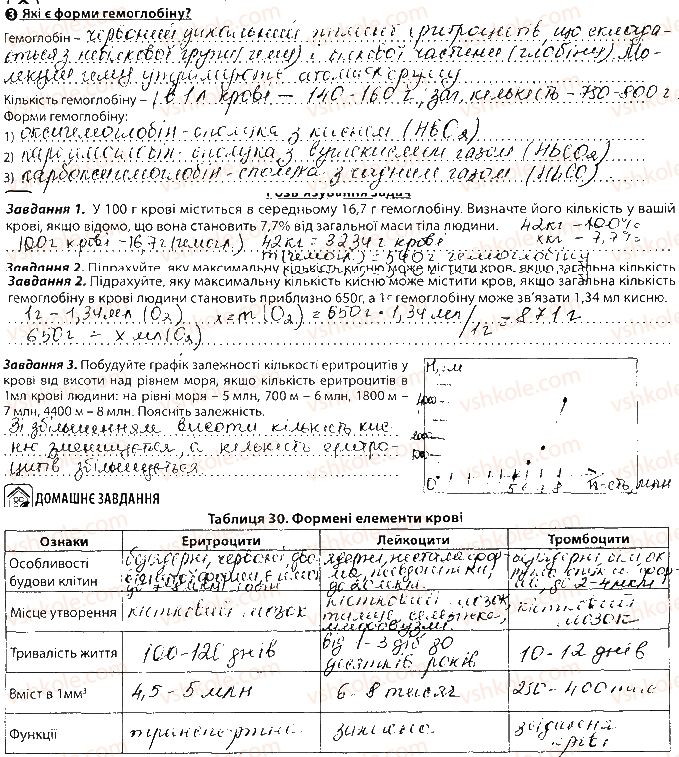 3 Які є форми гемоглобіну?
Гемоглобін – червоний дихальний пігмент еритроцитів, що склада-
ється з небілкової групи (гему) і білкової частини (глобіну). Мо-
лекули гему утримують атоми феруму
Кількість гемоглобіну – в 1л крові – 140-160 г, заг. кількість – 750-800 г
Форми гемоглобіну:
1) оксигемоглобін - сполука з киснем (HbO2)
2) карбгемоглобін - сполука з вуглекислим газом (HbCO2)
3) карбоксигемоглобін - сполука з чадним газом (HbCO)
Розв'язування задач
Завдання 1. У 100 г крові міститься в середньому 16,7 г гемоглобіну. Визначте його кількість у вашій
крові, якщо відомо, що вона становить 7,7% від загальної маси тіла людини. 42кг – 100%
100г крові - 16,7г (гемогл.) 42кг = 3234г крові xкг – 7,7%
m(гемогл.) = 540г гемоглобіну
Завдання 2. Підрахуйте, яку максимальну кількість кисню може містити кров, якщо загальна кількість
Завдання 2. Підрахуйте, яку максимальну кількість кисню може містити кров, якщо загальна кількість
гемоглобіну в крові людини становить приблизно 650г, а 1г гемоглобіну може зв'язати 1,34 мл кисню.
1г – 1,34мл (O2) x = m(O2) = 650г · 1,34мл / 1г = 871г
650г – x мл (O2)
Завдання 3. Побудуйте графік залежності кількості еритроцитів у
крові від висоти над рівнем моря, якщо кількість еритроцитів в
1мл крові людини: на рівні моря – 5 млн, 700 м – 6 млн, 1800 м –
7 млн, 4400 м – 8 млн. Поясніть залежність.
Зі збільшенням висоти кількість кис-
ню зменшується, а кількість еритро-
цитів збільшується
H, м
4000
2000
1000
0 5 6 7 8 к-сть, млн
ДОМАШНЄ ЗАВДАННЯ
Таблиця 30. Формені елементи крові
Ознаки Еритроцити Лейкоцити Тромбоцити
Особливості будови клітин
Місце утворення кістковий мозок кістковий мозок, тимус, селезінка, лімфовузли кістковий мозок
Тривалість життя 100-120 днів від 1-3 діб до десятків років 10-12 днів
Вміст в 1мм³ 4,5 - 5 млн 6-8 тисяч 250-400 тис
Функції транспортна захисна зсідання крові
vshkole.com